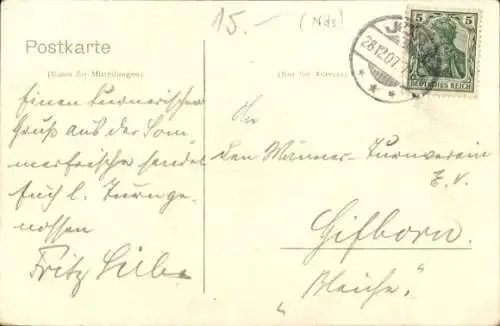 15.- (Nds)
Postkarte
(Raum für Mitteilungen)
(Nur für Adresse)
28.12.07.
5 5
DEUTSCHES REICH
Einen turnerischen
Gruß aus der Som-
merfrische sendet
Euch l. Turnge-
nossen
Fritz
An
den Männer-Turnverein
E. V.
Gifhorn.
"Bleiche."